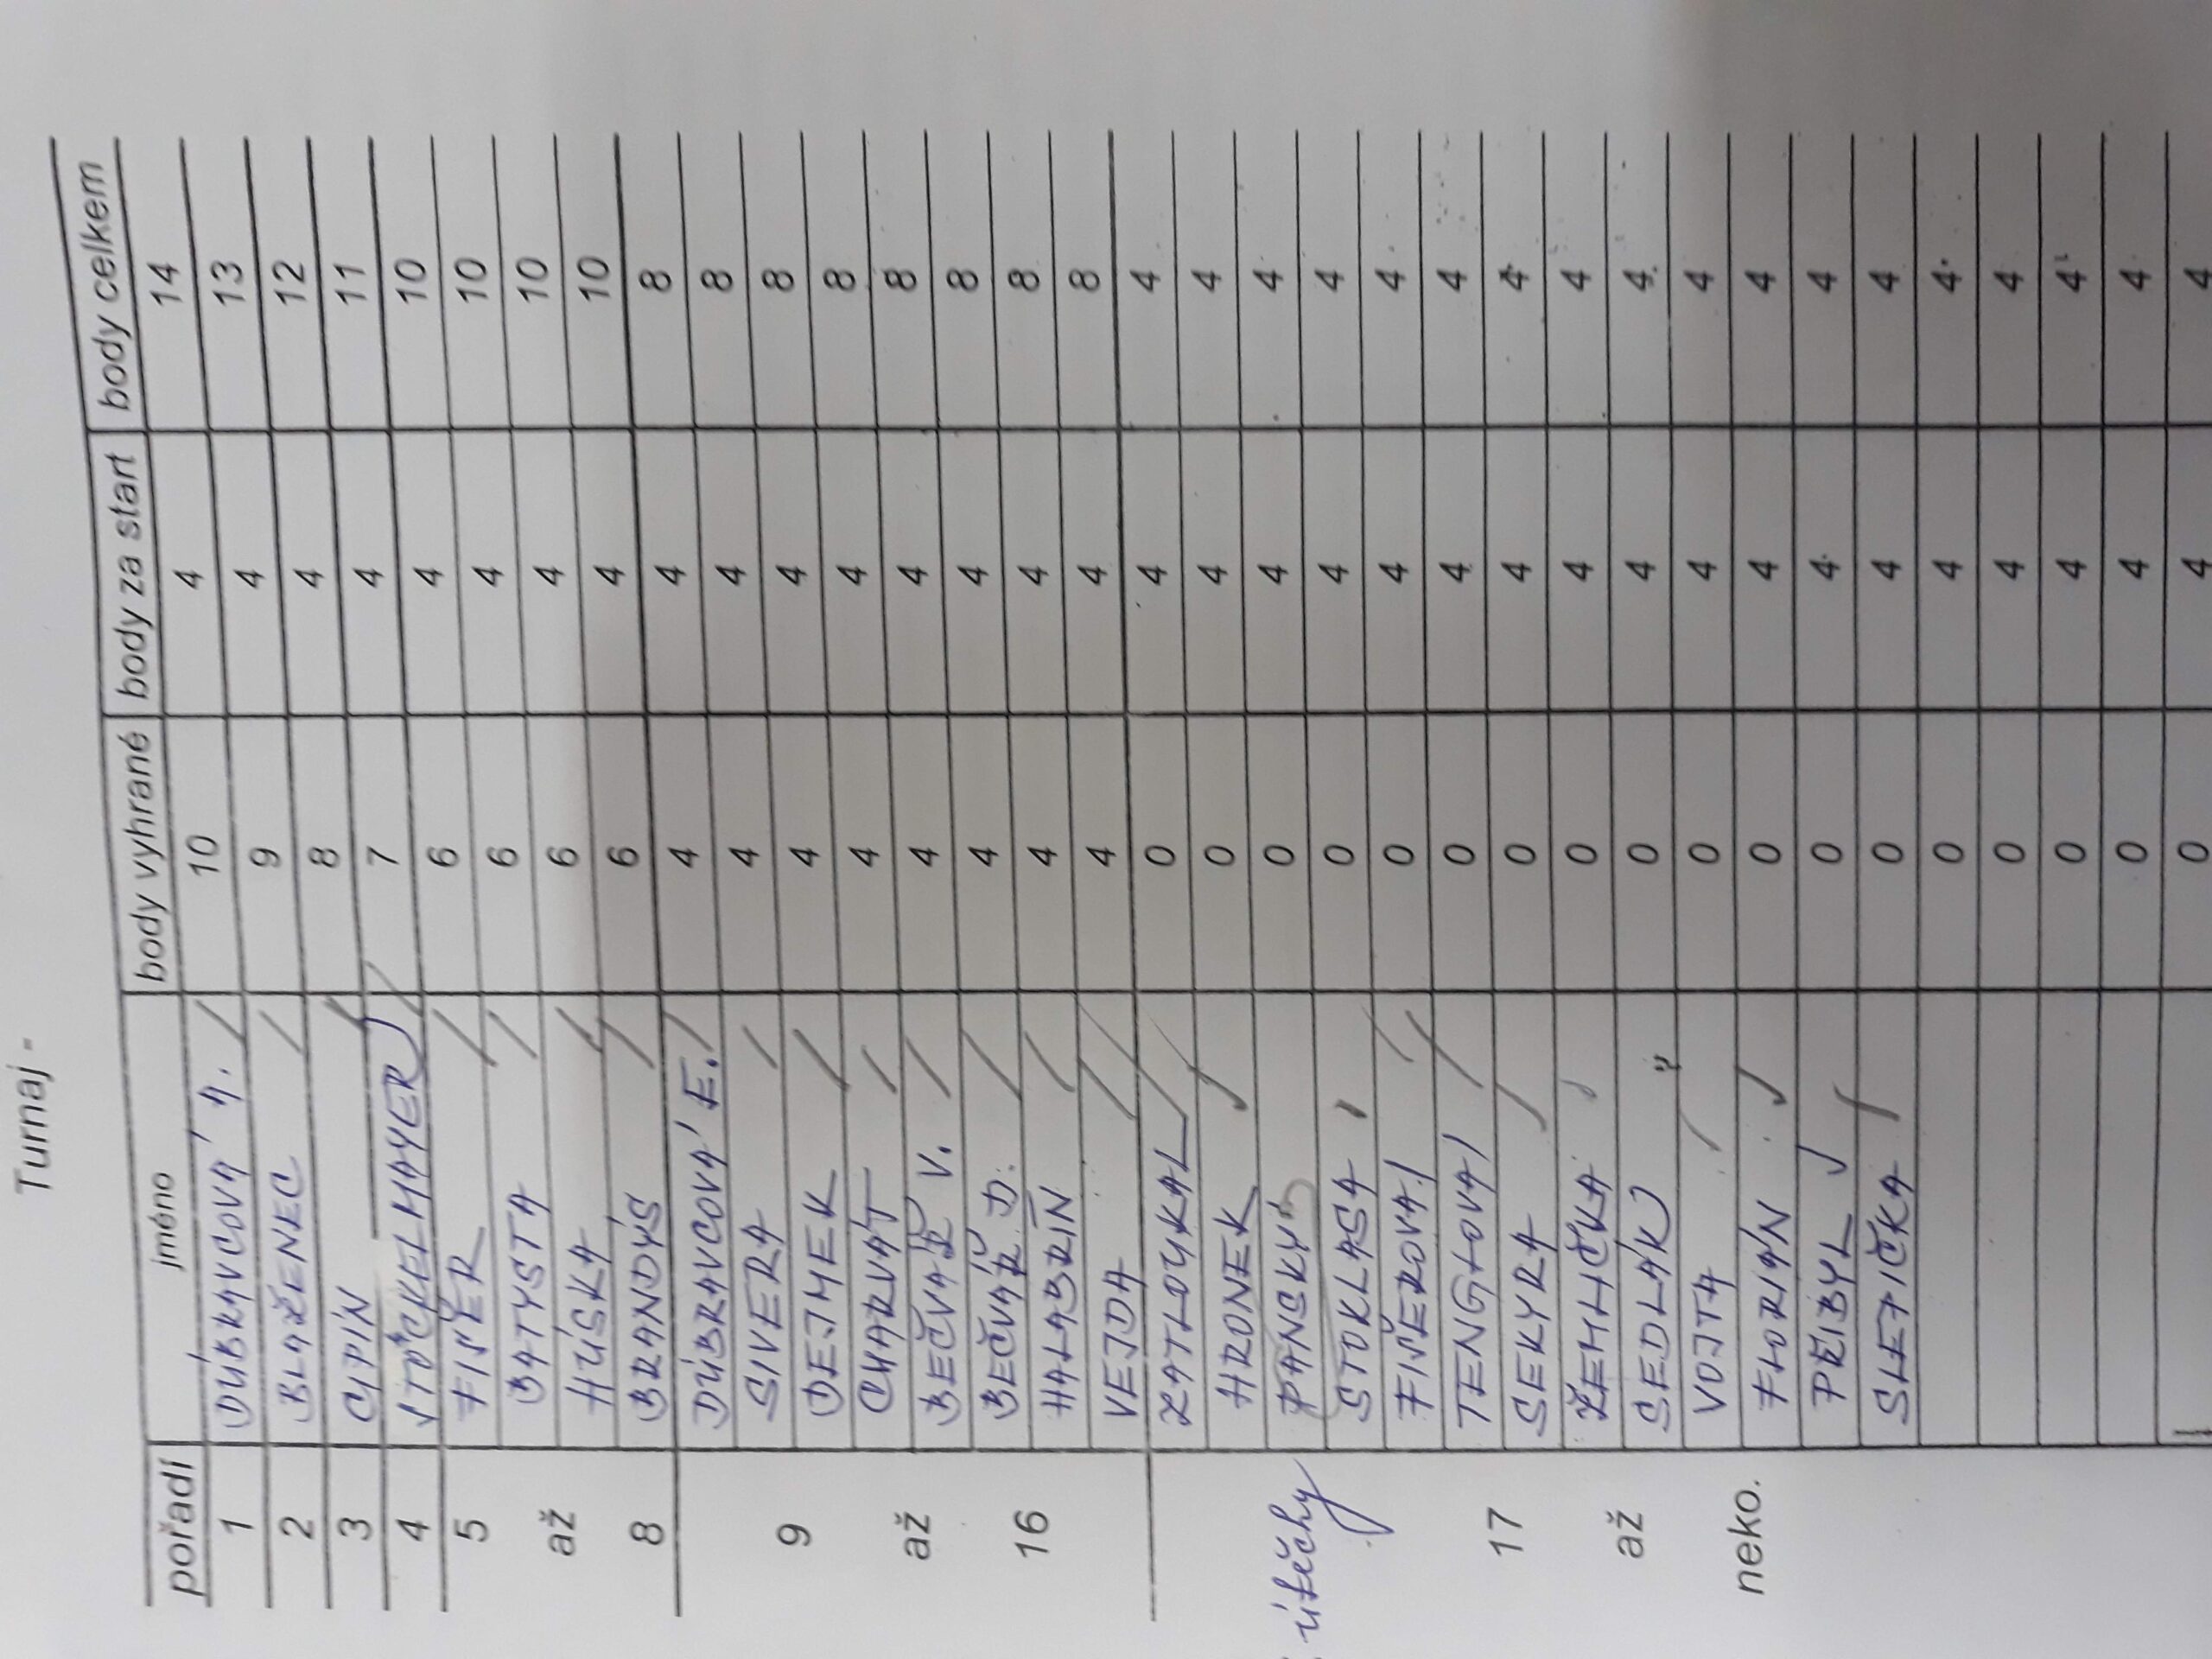 Turnaj -
pořadí jméno body vyhrané body za start body celkem
1 DÚBRAVCOVÁ A. 10 4 14
2 BLAŽENEC 9 4 13
3 CIPÍN 8 4 12
4 STÖCKELMAYER 7 4 11
5 FIŠER 6 4 10
BATYSTA 6 4 10
až HÚSKA 6 4 10
8 BRANDÝS 6 4 10
DÚBRAVCOVÁ E. 4 4 8
SIVERA 4 4 8
9 DEJMEK 4 4 8
CHARVÁT 4 4 8
až BEČVÁŘ V. 4 4 8
BEČVÁŘ D. 4 4 8
16 HALABRÍN 4 4 8
VEJDA 4 4 8
ZATLOUKAL 0 4 4
HRONEK 0 4 4
útěchy PÁNSKÝ 0 4 4
STOKLASA 0 4 4
FIŠEROVA 0 4 4
TENGLOVA 0 4 4
17 SEKYRA 0 4 4
ŽEMLIČKA 0 4 4
až SEDLÁK 0 4 4
VOJTA 0 4 4
neko. FLORIÁN 0 4 4
PŘIBYL 0 4 4
SLEPIČKA 0 4 4
0 4 4
0 4 4
0 4 4
0 4 4
0 4 4